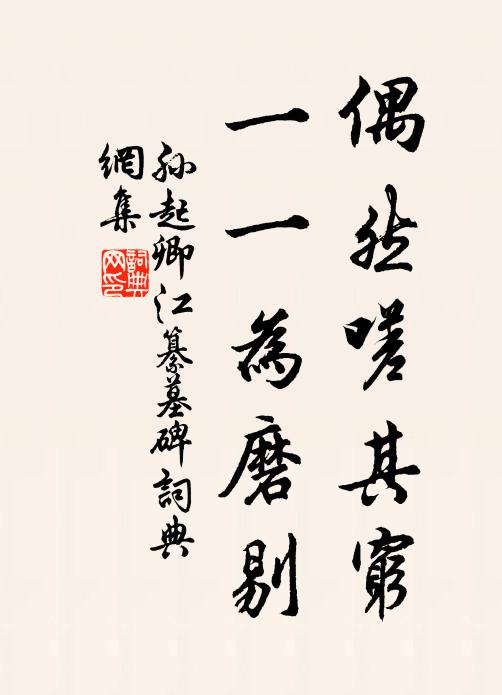 偶然嗟其窮
一一為磨剔
孫起卿江纂墓碑詞典
網集
詞典
网印